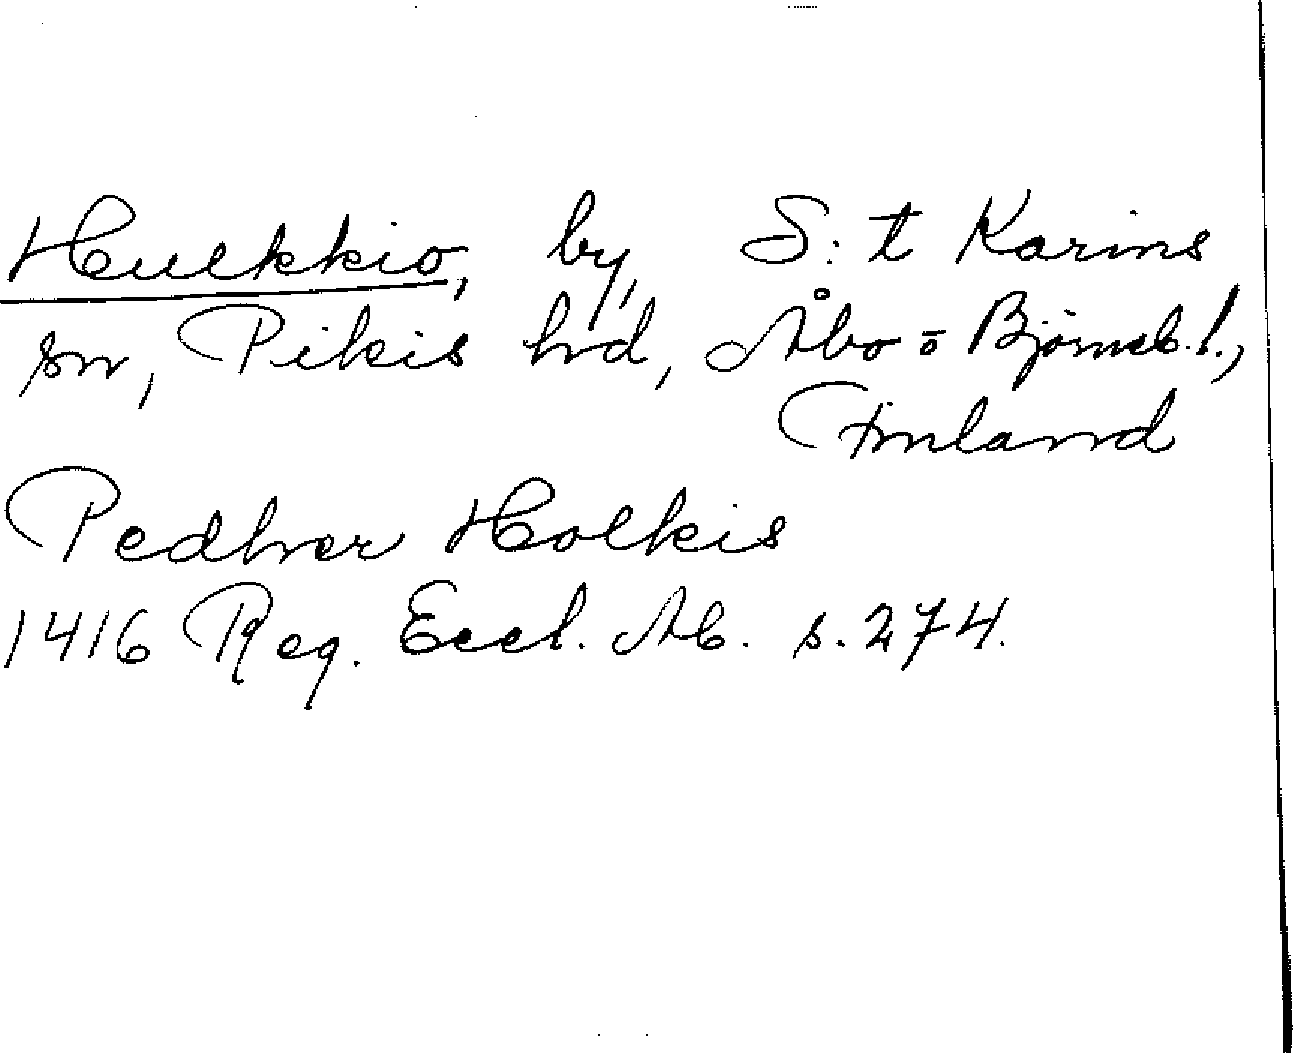 Hulkkio, by, S:t Karins
sn, Pikis hrd, Åbo o Björneb.l.,
Finland
Pedher Holkis
1416 Reg. Eccl. Ab. s. 274.